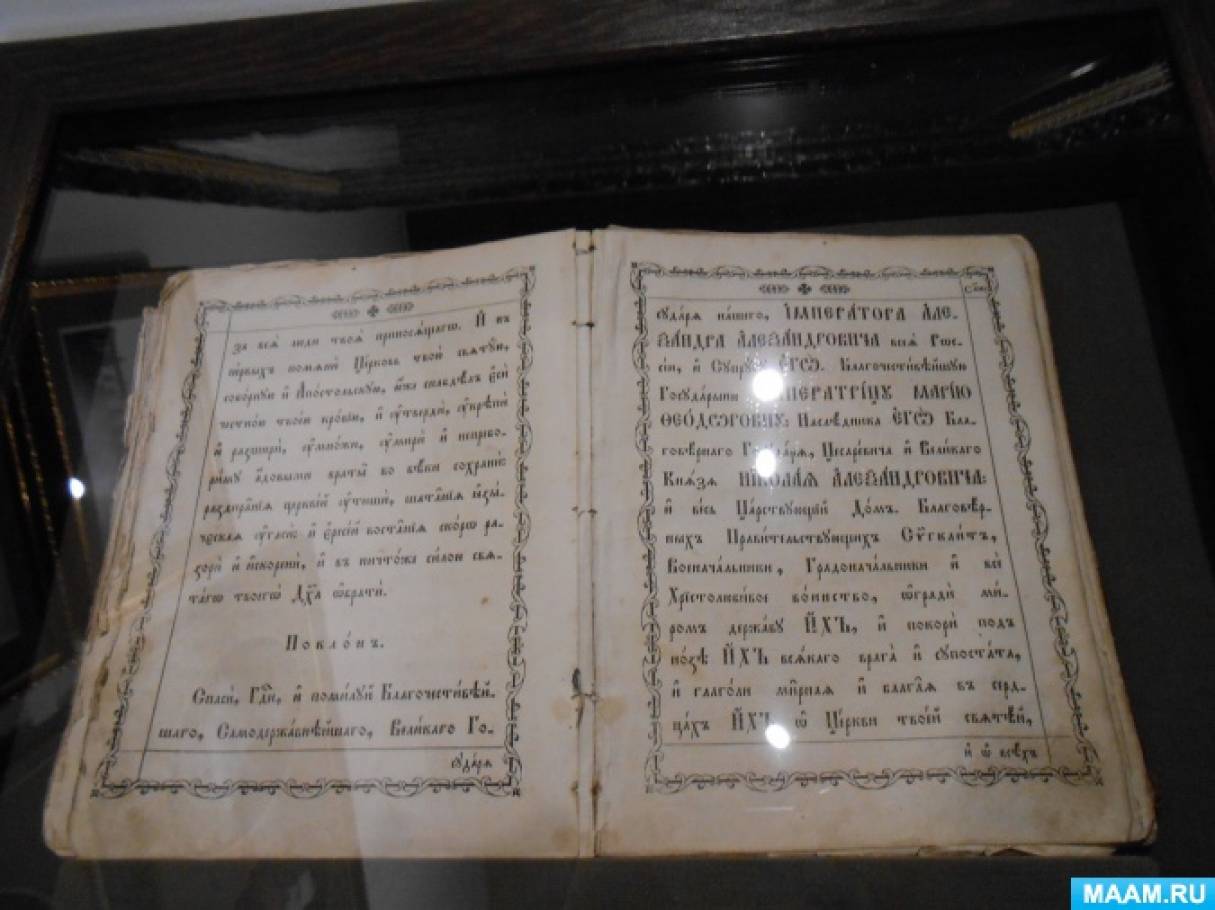 за всѧ̀ лю́ди твоѧ̀ приносѧ́щагѡ. И҆ въ
пе́рвыхъ помѧнѝ Це́рковь твою̀ свѧтꙋ́ю,
собо́рнꙋю и҆ А҆по́стольскꙋю, ю҆́же снабдѣ́лъ є҆сѝ
честно́ю твое́ю кро́вїю, и҆ ᲂу҆твердѝ, ᲂу҆крѣпѝ
и҆ разширѝ, ᲂу҆мно́жи, ᲂу҆мирѝ и҆ непребо-
ри́мꙋ а҆́довыми враты̀ во вѣ́ки сохранѝ:
раздира̑нїѧ церкве́й ᲂу҆тишѝ, шата̑нїѧ ꙗ҆зы́-
ческаѧ ᲂу҆гасѝ: и҆ є҆ресе́й воста̑нїѧ ско́рѡ ра-
зорѝ и҆ и҆скоренѝ, и҆ въ ничто́же си́лою свѧ-
та́гѡ твоегѡ̀ Дх҃а ѡ҆братѝ.
Покло́нъ.
Спасѝ, Гдⷭ҇и, и҆ поми́лꙋй Благочести́вѣй-
шаго, Самодержа́внѣйшаго, Вели́каго Го-
сꙋда́рѧ
сꙋда́рѧ на́шего, И҆МПЕРА́ТОРА А҆ЛЕ-
ѮА́НДРА А҆ЛЕѮА́НДРОВИЧА всеѧ̀ Рѡс-
сі́и, и҆ Сꙋпрꙋ́гꙋ Є҆ГѠ̀. Благочести́вѣйшꙋю
Госꙋда́рыню И҆МПЕРАТРИ́ЦꙊ МАРІ́Ю
ѲЕО́ДѠРОВНꙊ: Наслѣ́дника Є҆ГѠ̀ Бла-
говѣ́рнаго Госꙋда́рѧ, Цесаре́вича и҆ Вели́каго
Кнѧ́зѧ НИКОЛА́Ѧ А҆ЛЕѮА́НДРОВИЧА:
и҆ ве́сь Ца́рствꙋющїй До́мъ. Благовѣ́р-
ныхъ Прави́тельствꙋющихъ Сѷгкли́тъ,
Военача́льники, Градонача́льники и҆ всѐ
Хрїстолюби́вое во́инство, ѡ҆градѝ ми́-
ромъ держа́вꙋ И҆́ХЪ, и҆ покорѝ под̾
но́зѣ И҆́ХЪ всѧ́каго врага̀ и҆ сꙋпоста́та,
и҆ глаго́ли ми̑рнаѧ и҆ блага̑ѧ въ серд-
ца́хъ И҆́ХЪ ѡ҆ Це́ркви твое́й свѧтѣ́й,
и҆ ѡ҆ всѣ́хъ
MAAM.RU